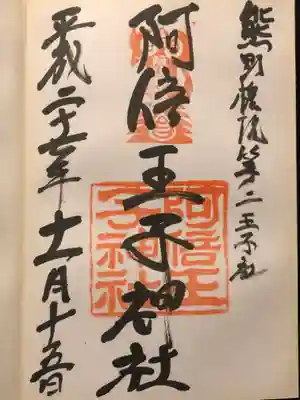 熊野権現第二王子社
阿倍王子神社
阿倍王子神社
平成二十七年十一月十五日